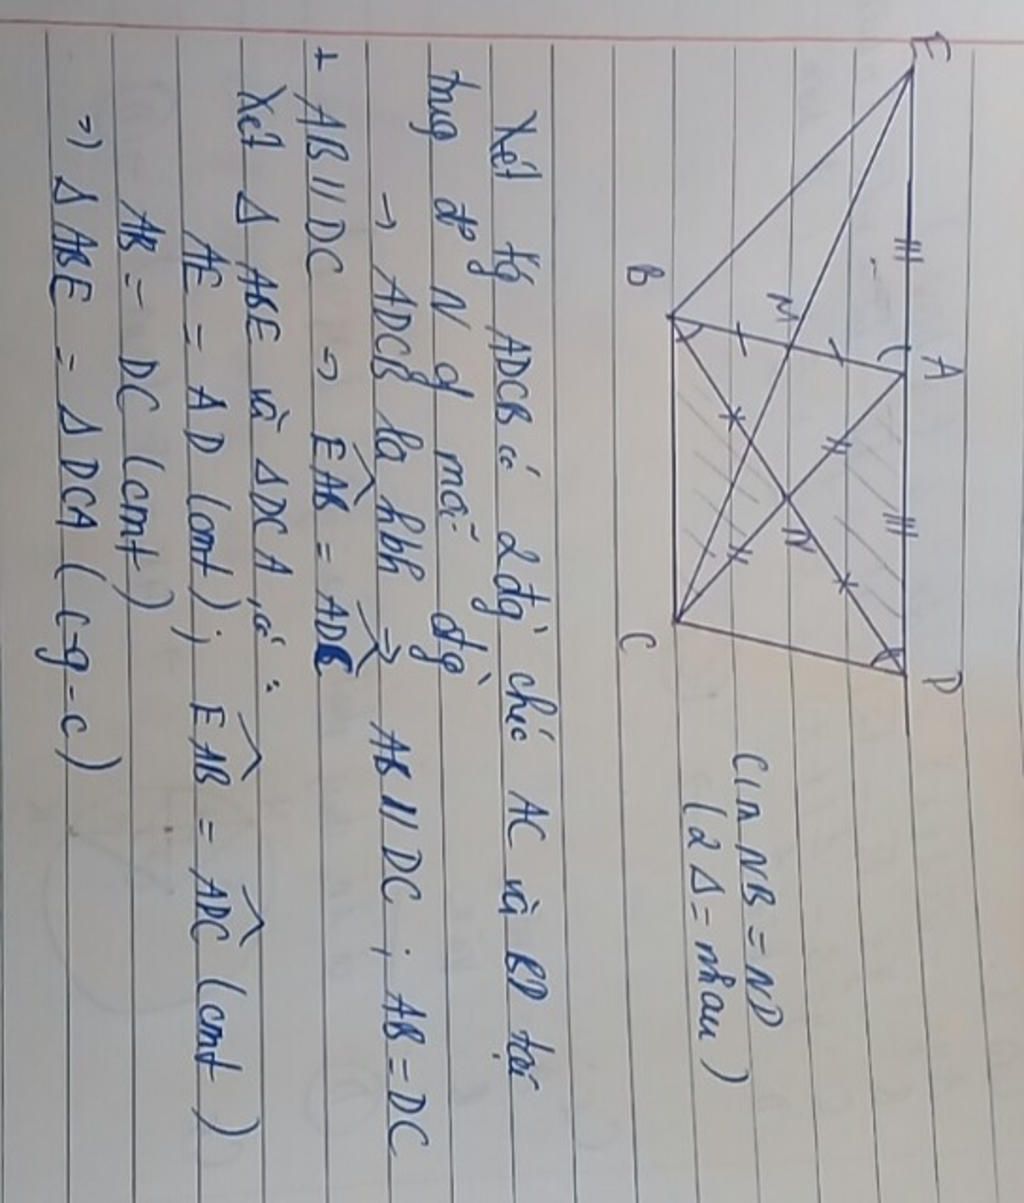 E A D
M
N
B C
C/m NB = ND
(2 Δ = nhau)
Xét tg ADCB có 2 đg' chéo AC và BD tại
trug đ' N of mỗi đg'
→ ADCB là hbh ⇒ AB // DC ; AB = DC
+ AB // DC ⇒ EAB = ADC
Xét Δ ABE và ΔDCA có :
AE = AD (cmt) ; EAB = ADC (cmt)
AB = DC (cmt)
⇒ Δ ABE = Δ DCA (c-g-c)